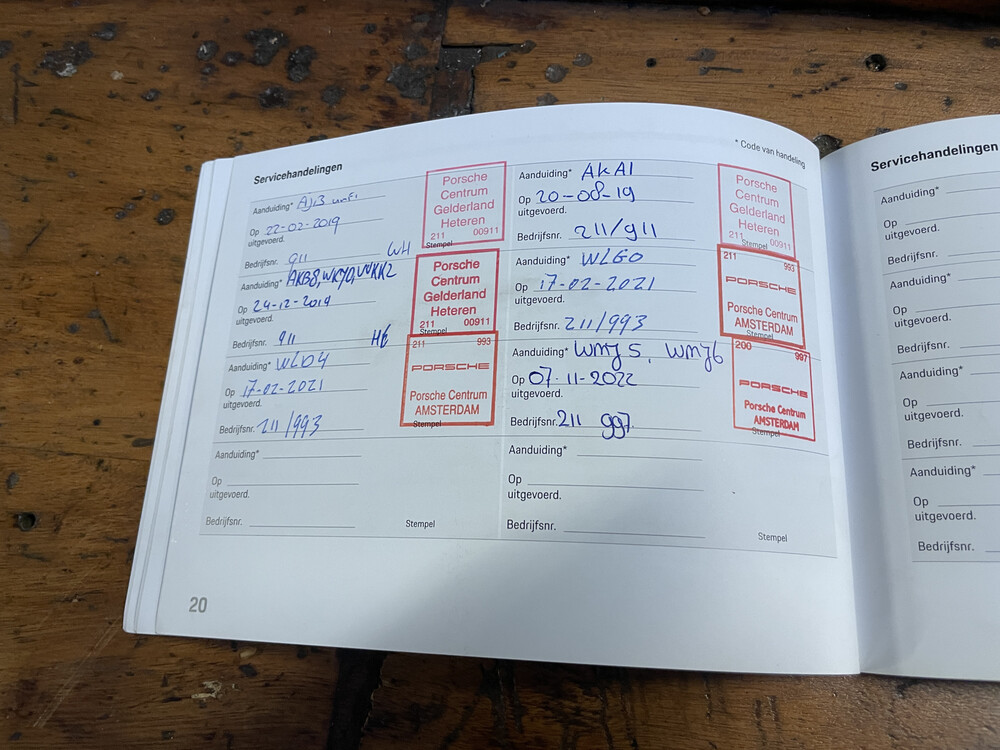 Servicehandelingen
* Code van handeling
Aanduiding*
Op 22-02-2019
uitgevoerd.
Bedrijfsnr. 911 WH
Porsche
Centrum
Gelderland
Heteren
211 00911
Stempel
Aanduiding* AKB8, WKY0, WKK2
Op 24-12-2019
uitgevoerd.
Bedrijfsnr. 911
Porsche
Centrum
Gelderland
Heteren
211 00911
Stempel
Aanduiding* WLD4
Op 17-02-2021
uitgevoerd.
Bedrijfsnr. 211/993
211 993
PORSCHE
Porsche Centrum
AMSTERDAM
Stempel
Aanduiding*
Op
uitgevoerd.
Bedrijfsnr.
Stempel
Aanduiding* AKA1
Op 20-08-19
uitgevoerd.
Bedrijfsnr. 211/911
Porsche
Centrum
Gelderland
Heteren
211 00911
Stempel
Aanduiding* WLG0
Op 17-02-2021
uitgevoerd.
Bedrijfsnr. 211/993
211 993
PORSCHE
Porsche Centrum
AMSTERDAM
Aanduiding* WMJ5, WMJ6
Op 07-11-2022
uitgevoerd.
Bedrijfsnr. 211 997
200 997
PORSCHE
Porsche Centrum
AMSTERDAM
Stempel
Aanduiding*
Op
uitgevoerd.
Bedrijfsnr.
Stempel
20
Servicehandelingen
Aanduiding*
Op
uitgevoerd.
Bedrijfsnr.
Aanduiding*
Op
uitgevoerd.
Bedrijfsnr.
Aanduiding*
Op
uitgevoerd.
Bedrijfsnr.
Aanduiding*
Op
uitgevoerd.
Bedrijfsnr.